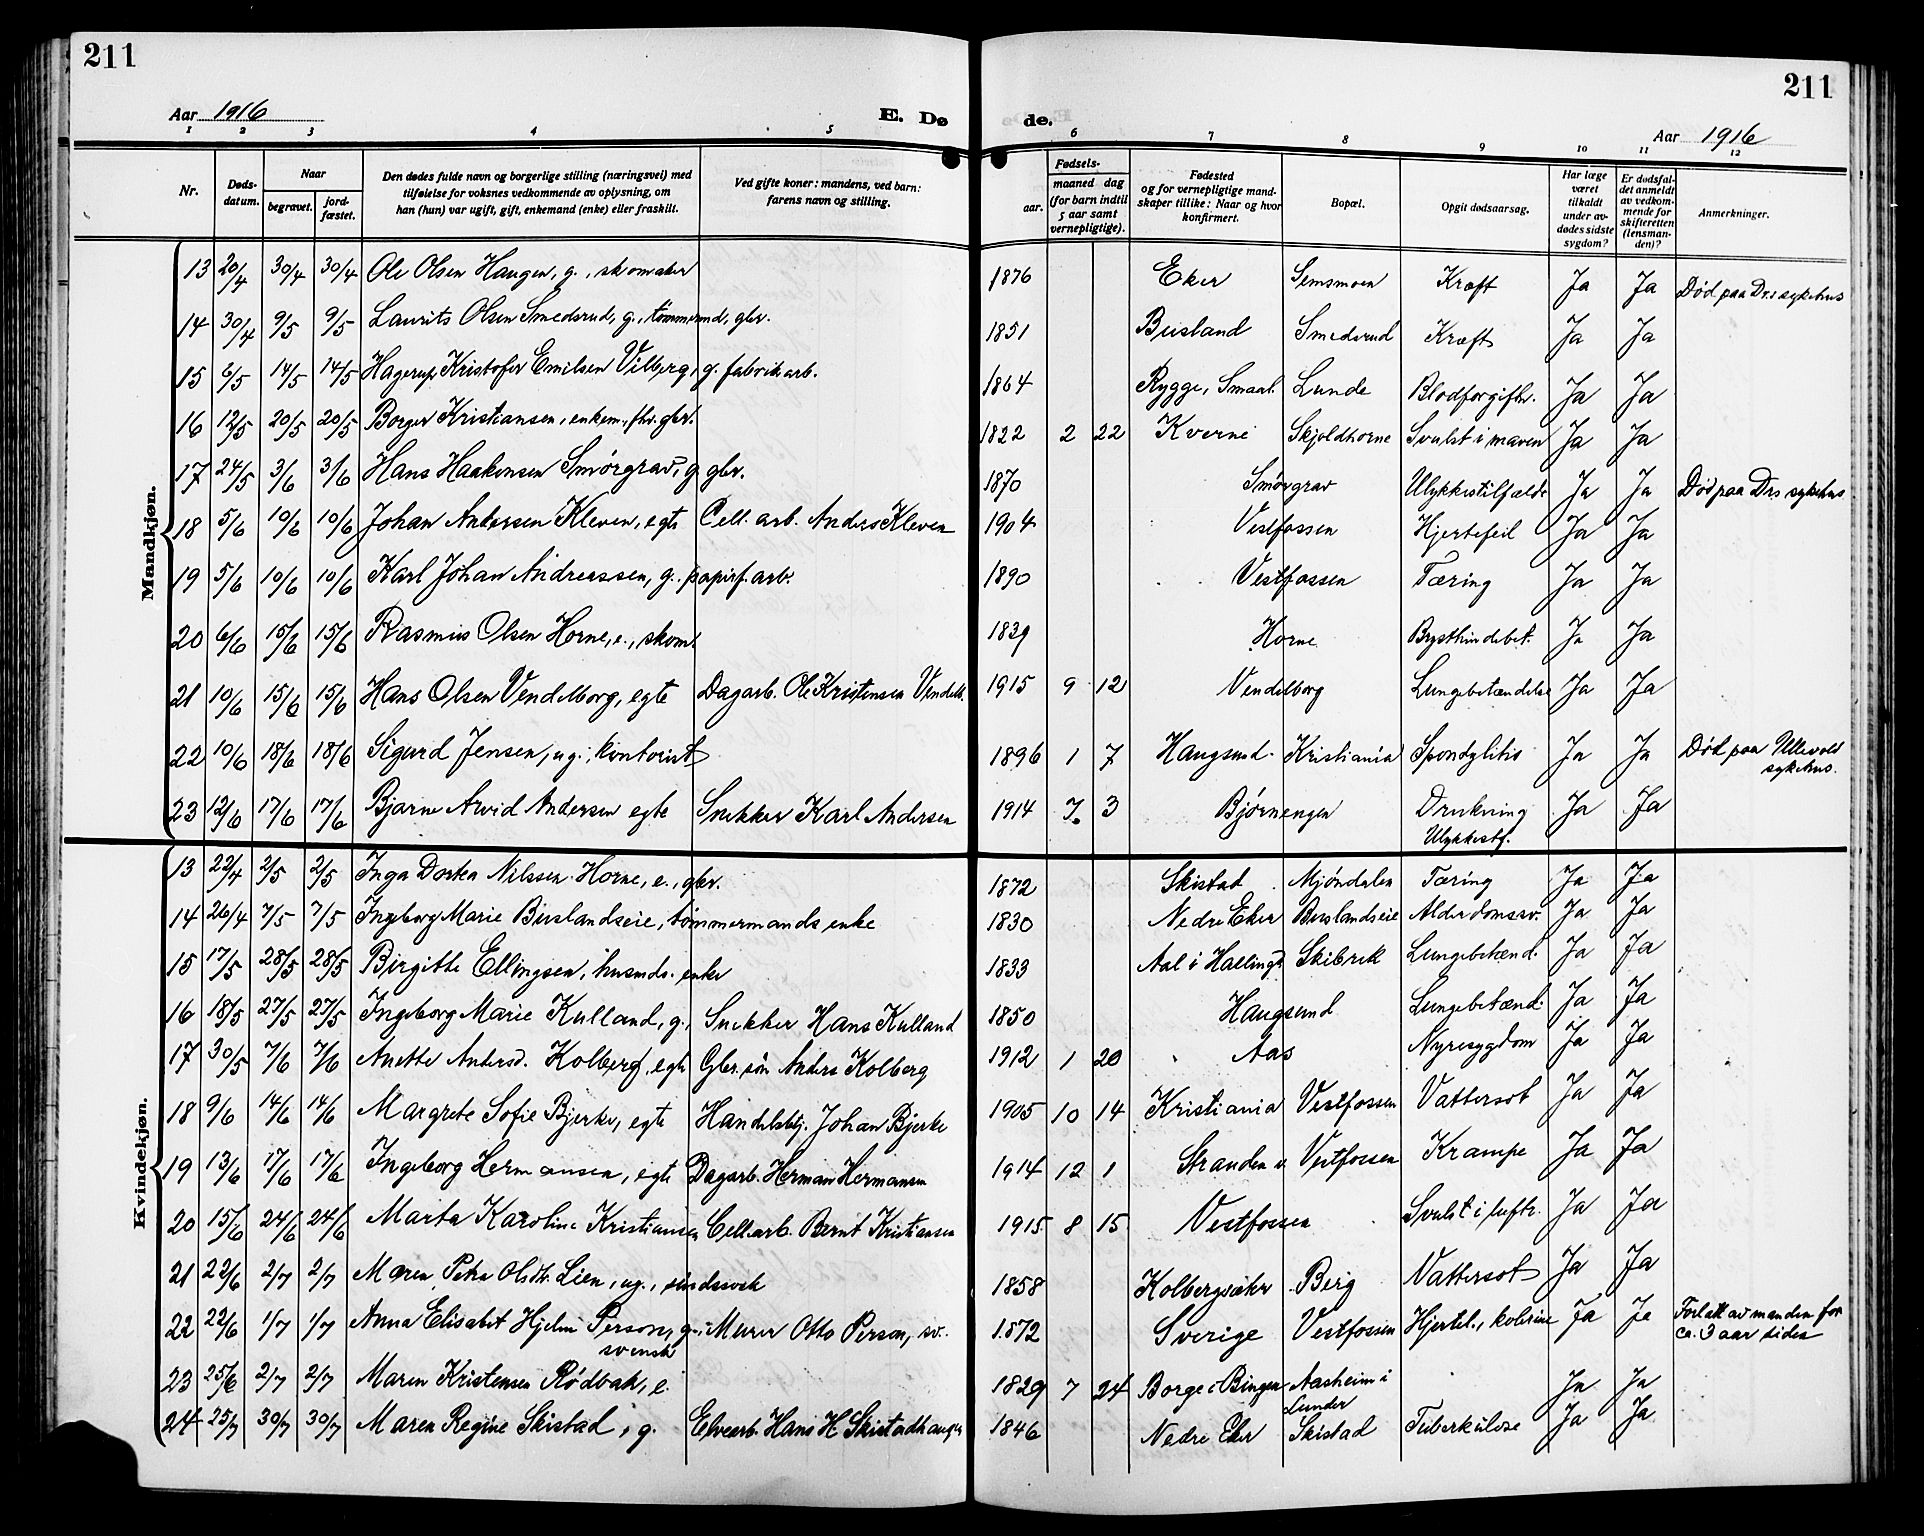 211
211
Aar 1916
E. Dø
de.
Aar 1916
1 2 3 4 5 6 7 8 9 10 11 12
Nr. Døds-datum. Naar begravet. jord-fæstet. Den dødes fulde navn og borgerlige stilling (næringsvei) med tilføielse for voksnes vedkommende av oplysning, om han (hun) var ugift, gift, enkemand (enke) eller fraskilt. Ved gifte koner: mandens, ved barn: farens navn og stilling. Fødsels- aar. maaned dag (for barn indtil 5 aar samt vernepligtige). Fødested og for vernepligtige mand-skaper tillike: Naar og hvor konfirmert. Bopæl. Opgit dødsaarsag. Har læge været tilkaldt under av-dødes sidste sygdom? Er dødsfal-det anmeldt av vedkom-mende for skifteretten (lensman-den)? Anmerkninger.
Mandkjøn.
13 20/4 30/4 30/4 Ole Olsen Haugen, g., skomaker 1876 Eker Semsmoen Kræft Ja Ja Død paa Drs sykehus
14 30/4 9/5 9/5 Laurits Olsen Smedsrud, g., tømmermd, gbr. 1851 Busland Smedsrud Kræft Ja Ja
15 6/5 14/5 14/5 Hagerup Kristofer Emilsen Vilberg, g. fabrikarb. 1864 Rygge, Smaal. Lunde Blodforgiftn. Ja Ja
16 12/5 20/5 20/5 Borger Kristiansen, enkem., fhv. gbr. 1822 2 22 Kverne Skjoldhorne Svulst i maven Ja Ja
17 24/5 3/6 3/6 Hans Haakensen Smörgrav, g. gbr. 1870 Smörgrav Ulykkestilfælde Ja Ja Død paa Drs sykehus
18 5/6 10/6 10/6 Johan Andersen Kleven, egte Cell. arb. Anders Kleven 1904 Vestfossen Hjertefeil Ja Ja
19 5/6 10/6 10/6 Karl Johan Andreassen, g. papirf. arb. 1890 Vestfossen Tæring Ja Ja
20 6/6 15/6 15/6 Rasmus Olsen Horne, e., skom. 1839 Horne Brysthindebet. Ja Ja
21 10/6 15/6 15/6 Hans Olsen Vendelborg, egte Dagarb. Ole Kristensen Vendelb. 1915 9 12 Vendelborg Lungebetændelse Ja Ja
22 10/6 18/6 18/6 Sigurd Jensen, ug., kontorist 1896 1 7 Haugsund Kristiania Spondylitis Ja Ja Død paa Ullevold sykehus.
23 12/6 17/6 17/6 Bjarne Arvid Andersen egte Snekker Karl Andersen 1914 7 3 Bjørnengen Drukning Ulykkestf. Ja Ja
Kvindekjøn.
13 22/4 2/5 2/5 Inga Dortea Nilssen Horne, e., gbr. 1872 Skistad Mjöndalen Tæring Ja Ja
14 26/4 7/5 7/5 Ingeborg Marie Buslandseie, tømmermands enke 1830 Nedre Eker Buslandseie Alderdomssv. Ja Ja
15 17/5 28/5 28/5 Birgitte Ellingsen, husmds. enke 1833 Aal i Hallingd. Skibrek Lungebetænd. Ja Ja
16 18/5 27/5 27/5 Ingeborg Marie Kulland, g., Snekker Hans Kulland 1850 Haugsund Lungebetænd. Ja Ja
17 30/5 7/6 7/6 Anette Andersd. Kolberg, egte Gbr. søn Anders Kolberg 1912 1 20 Aas Nyresygdom Ja Ja
18 9/6 14/6 14/6 Margrete Sofie Bjerke, egte Handelsbetj. Johan Bjerke 1905 10 14 Kristiania Vestfossen Vattersot Ja Ja
19 13/6 17/6 17/6 Ingeborg Hermansen, egte Dagarb. Herman Hermansen 1914 12 1 Stranden v. Vestfossen Krampe Ja Ja
20 15/6 24/6 24/6 Marta Karoline Kristiansen Cell.arb. Bernt Kristiansen 1915 8 15 Vestfossen Svulst i luftr. Ja Ja
21 22/6 2/7 2/7 Maren Petra Olsdtr. Lien, ug., sindssvak 1858 Kolbergsæker Berg Vattersot Ja Ja
22 22/6 1/7 1/7 Anna Elisabet Hjelm Person, g., svensk Murer Otto Person, sv. 1872 Sverige Vestfossen Hjertel., kolerine Ja Ja Forlatt av manden for ca. 3 aar siden
23 25/6 2/7 2/7 Maren Kristensen Rødbak, e. 1829 7 24 Borge i Bingen Aasheim i Lunder Ja Ja
24 25/7 30/7 30/7 Maren Regine Skistad, g. Elvearb. Hans H. Skistadhaugen 1846 Nedre Eker Skistad Tuberkulose Ja Ja